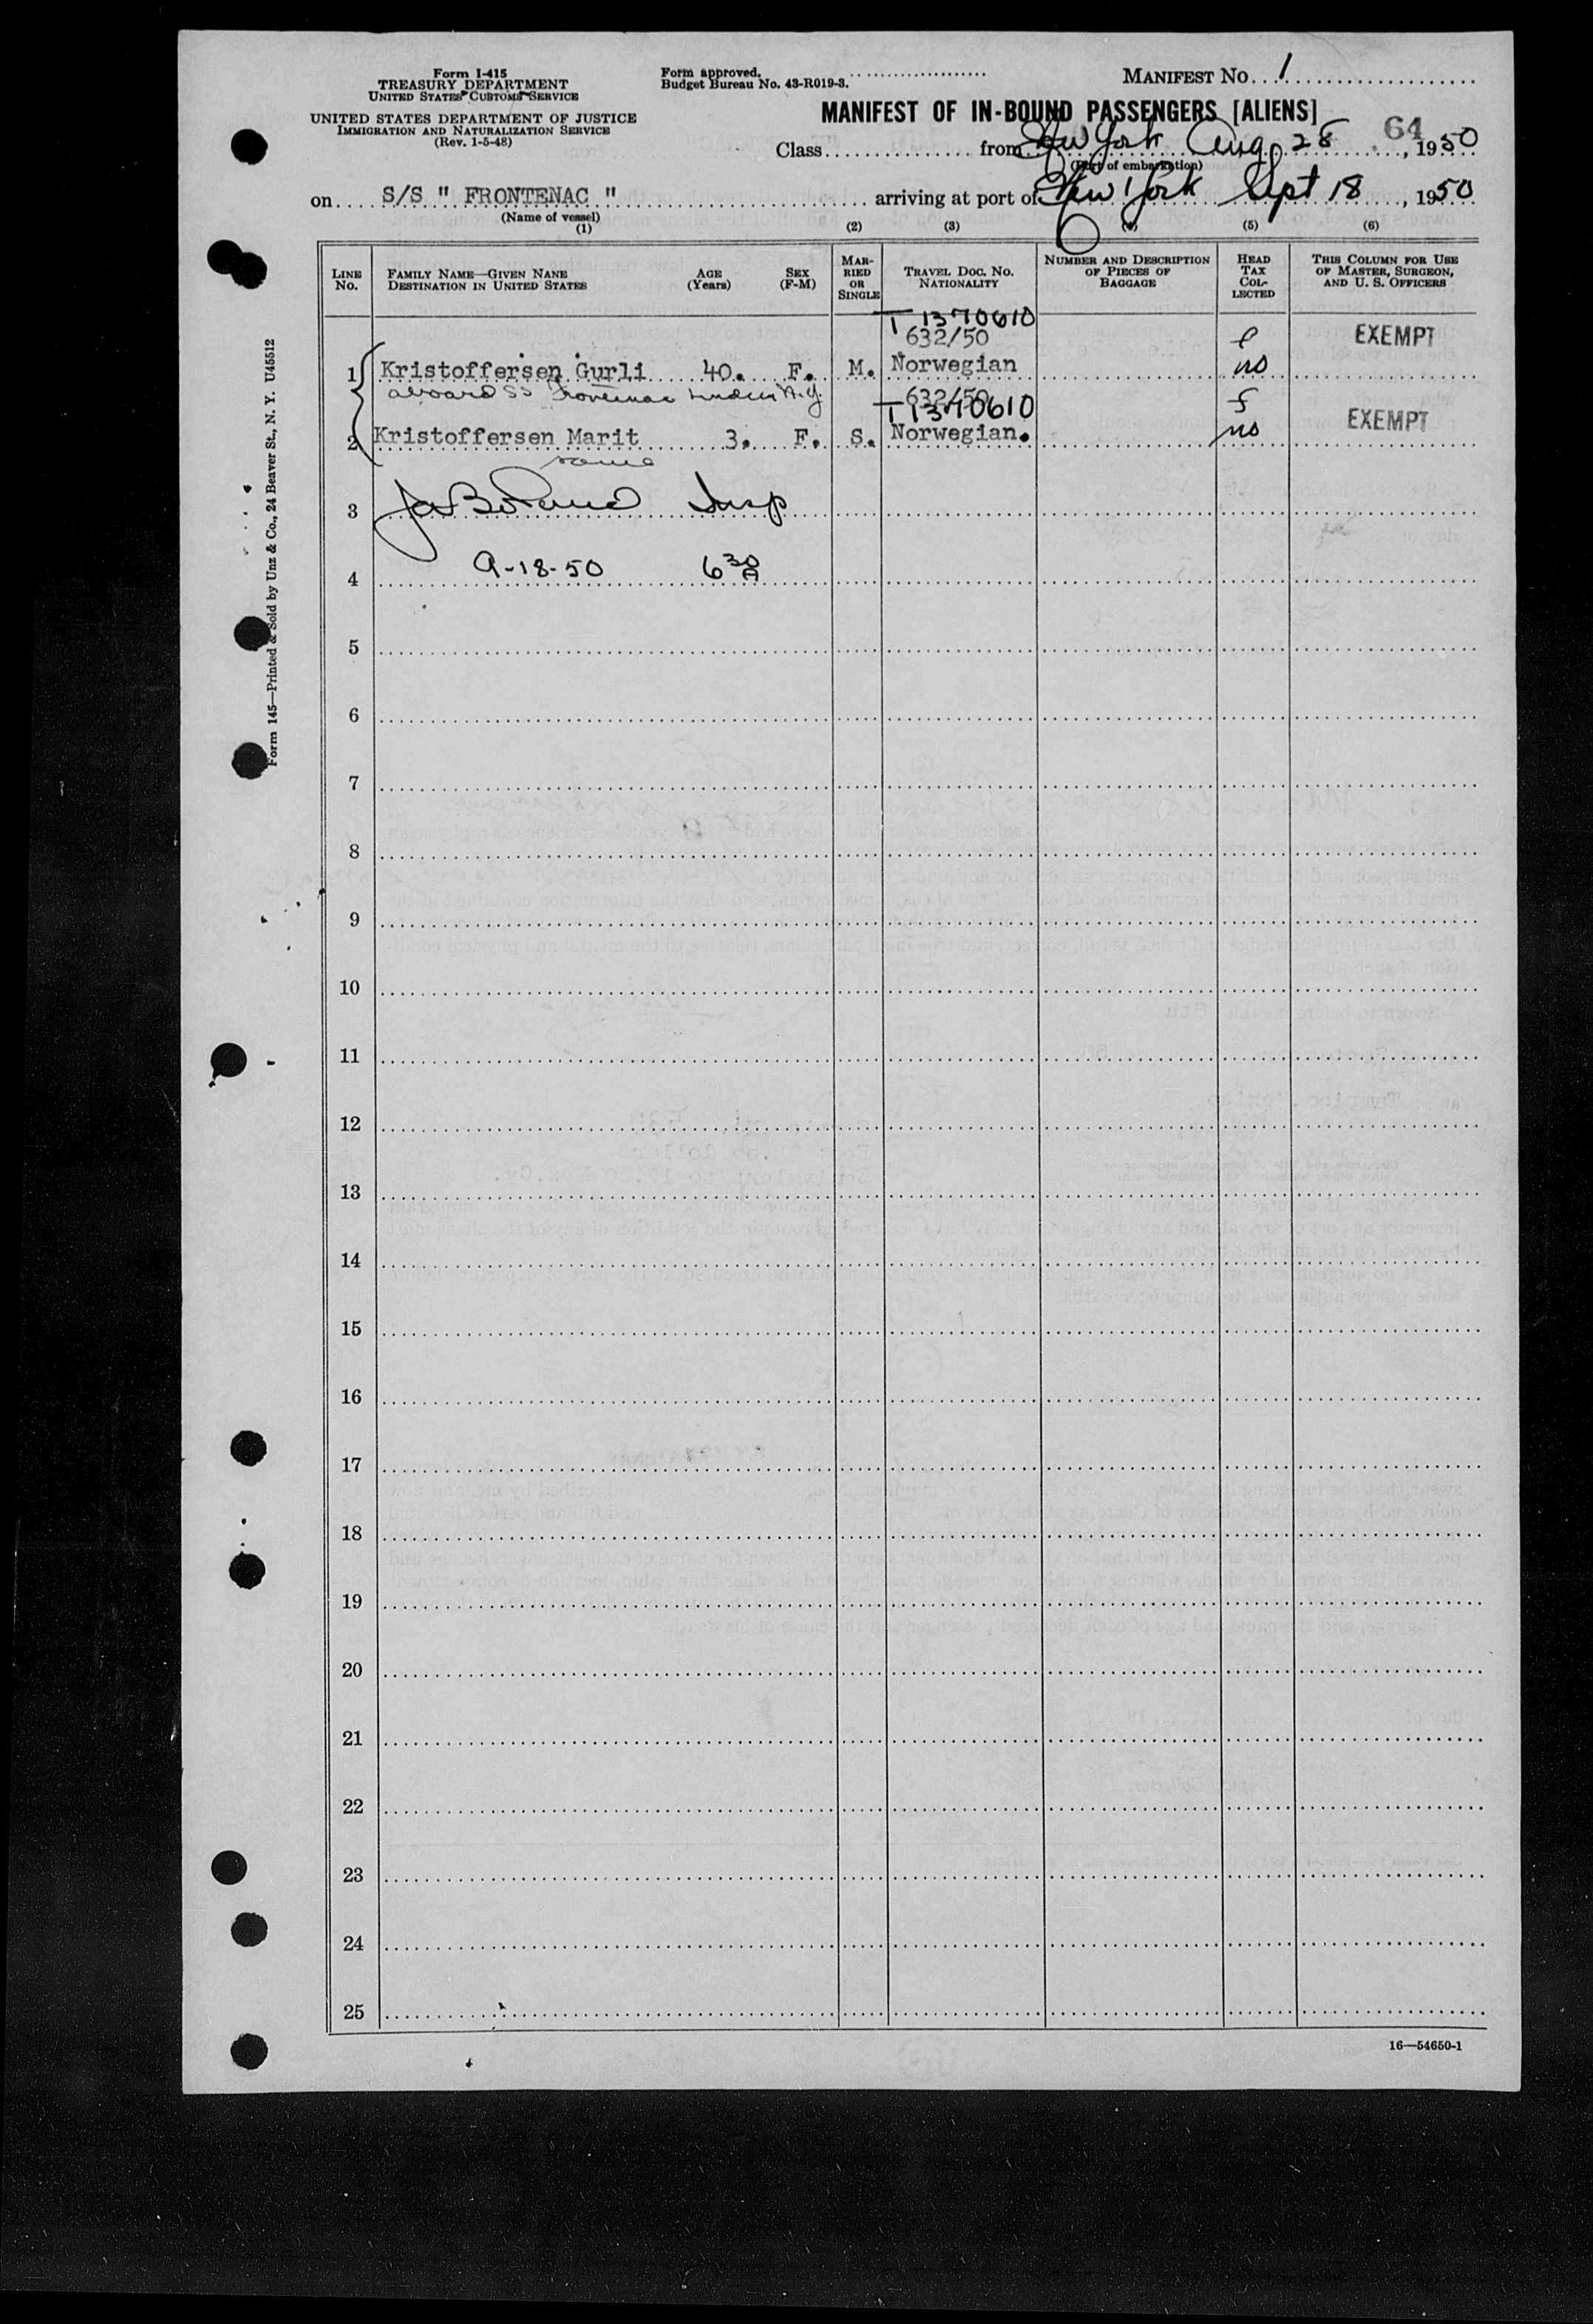 Form I-415
TREASURY DEPARTMENT
UNITED STATES CUSTOMS SERVICE
UNITED STATES DEPARTMENT OF JUSTICE
IMMIGRATION AND NATURALIZATION SERVICE
(Rev. 1-5-48)
Form approved.
Budget Bureau No. 43-R019-3.
MANIFEST NO. 1
MANIFEST OF IN-BOUND PASSENGERS [ALIENS]
64
Class from New York Aug 28, 1950
(Port of embarkation)
on S/S " FRONTENAC " arriving at port of New York Sept 18, 1950
(Name of vessel)
(1) (2) (3) (4) (5) (6)
LINE NO.
FAMILY NAME—GIVEN NANE
DESTINATION IN UNITED STATES
AGE (Years)
SEX (F-M)
MARRIED OR SINGLE
TRAVEL DOC. NO. NATIONALITY
NUMBER AND DESCRIPTION OF PIECES OF BAGGAGE
HEAD TAX COLLECTED
THIS COLUMN FOR USE OF MASTER, SURGEON, AND U. S. OFFICERS
T 1370610
632/50 EXEMPT
1 Kristoffersen Gurli 40. F. M. Norwegian no
aboard SS Frontenac N.Y.
632/50
T 1370610 EXEMPT
2 Kristoffersen Marit 3. F. S. Norwegian. no
same
3 Insp
4 9-18-50 6 30 A
5
6
7
8
9
10
11
12
13
14
15
16
17
18
19
20
21
22
23
24
25
16—54650-1
Form 145—Printed & Sold by Unz & Co., 24 Beaver St., N. Y. U45512